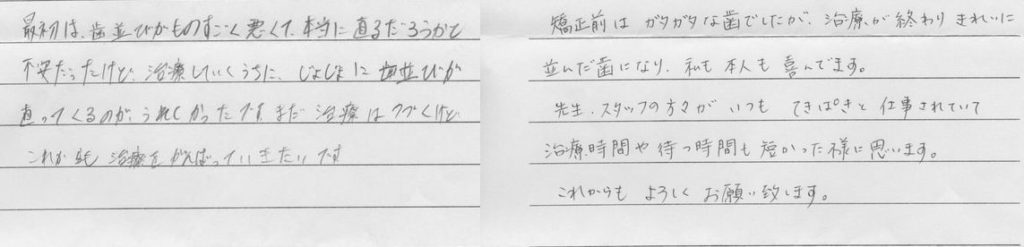 最初は、歯並びがものすごく悪くて、本当に直るだろうかと
不安だったけど、治療していくうちに、じょじょに歯並びが
直ってくるのが、うれしかったです。まだ治療はつづくけど
これからも治療をがんばっていきたいです
矯正前はガタガタな歯でしたが、治療が終わりきれいに
並んだ歯になり、私も本人も喜んでます。
先生、スタッフの方々がいつもてきぱきと仕事されていて
治療時間や待つ時間も短かった様に思います。
これからもよろしくお願い致します。